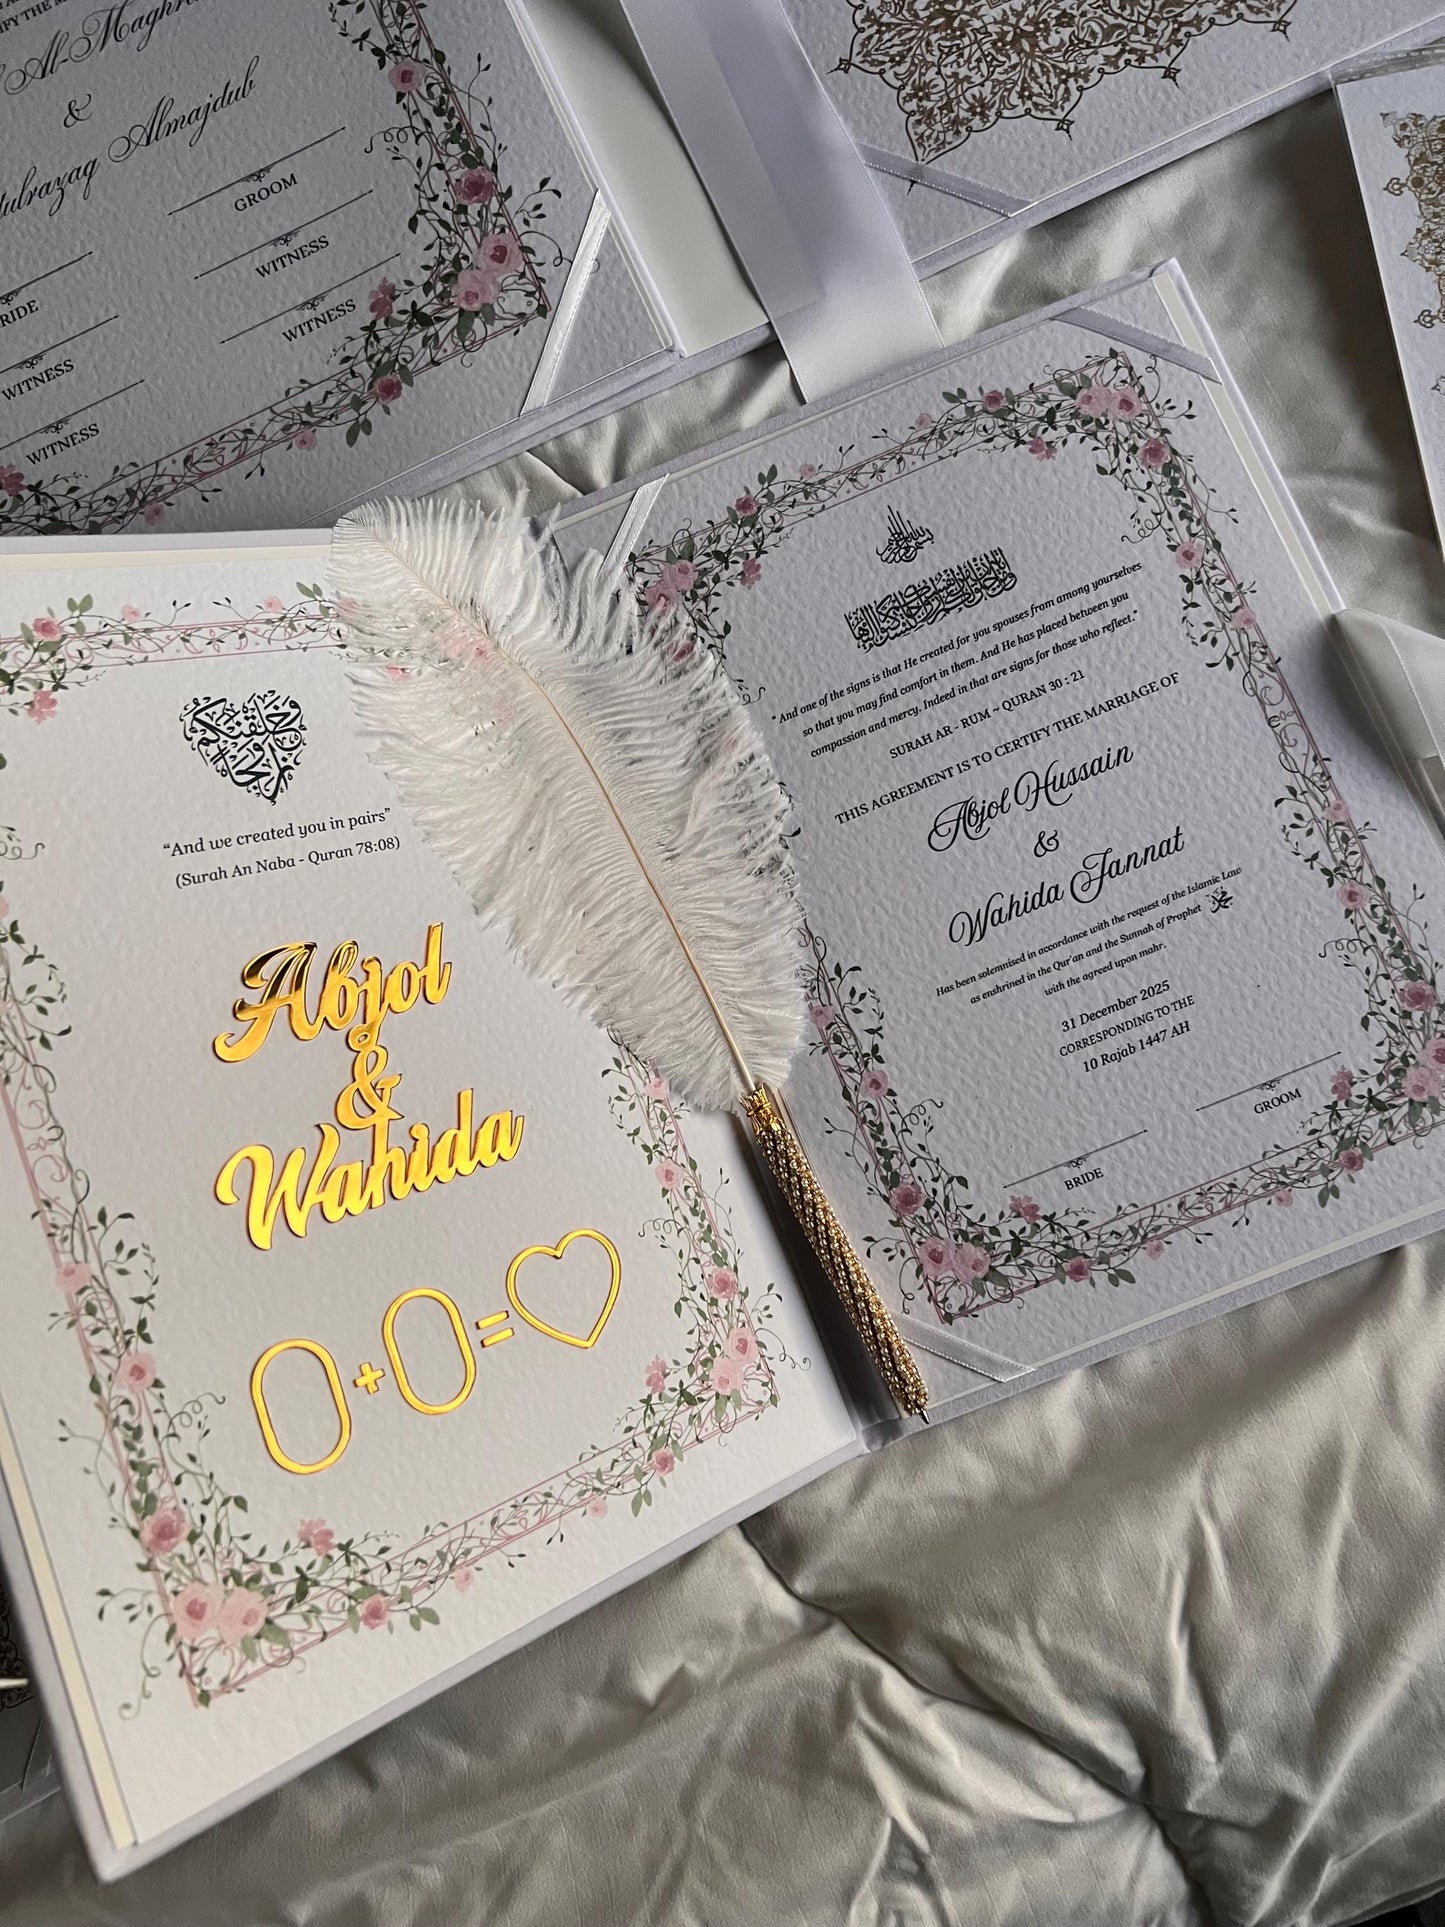 Al-Maghr
&
Almajdub
GROOM
WITNESS
WITNESS
WITNESS
WITNESS
وخلقنكم
أزوجا
“And we created you in pairs”
(Surah An Naba - Quran 78:08)
Abjol
&
Wahida
0+0=♡
“ And one of the signs is that He created for you spouses from among yourselves
so that you may find comfort in them. And He has placed between you
compassion and mercy. Indeed in that are signs for those who reflect.”
SURAH AR - RUM ~ QURAN 30 : 21
THIS AGREEMENT IS TO CERTIFY THE MARRIAGE OF
Abjol Hussain
&
Wahida Jannat
Has been solemnised in accordance with the request of the Islamic Law
as enshrined in the Qur'an and the Sunnah of Prophet ﷺ
with the agreed upon mahr.
31 December 2025
CORRESPONDING TO THE
10 Rajab 1447 AH
GROOM
BRIDE